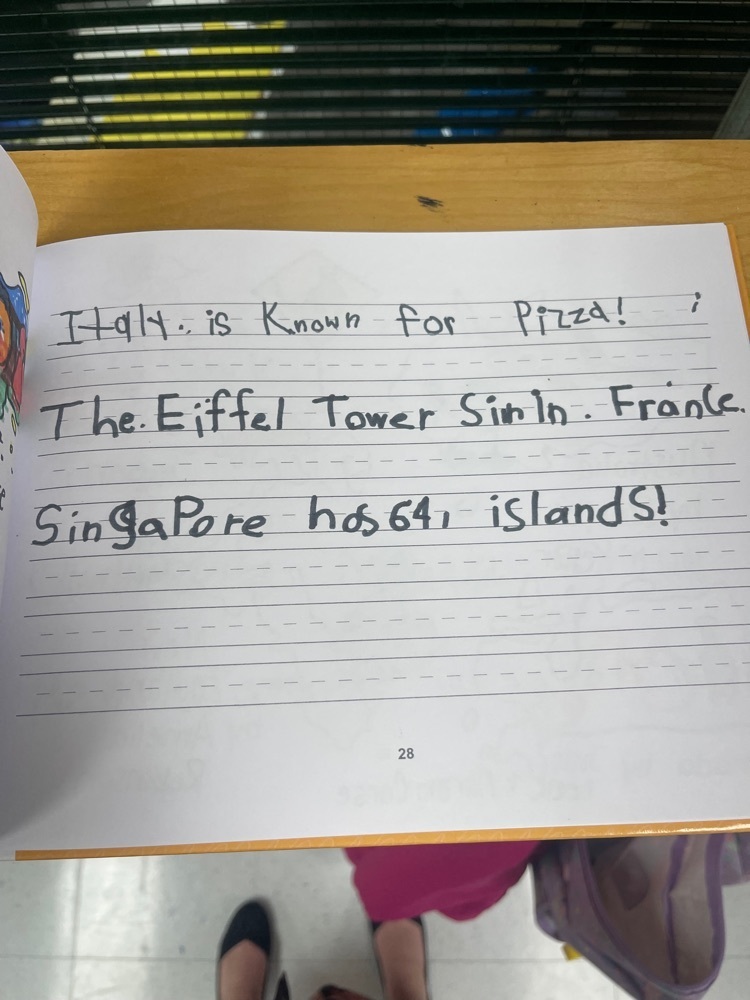 Italy. is Known for Pizza!
The. Eiffel Tower in. France.
SingaPore has 64, islandS!
28